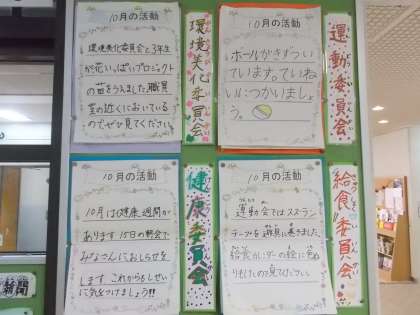 10月の活動
環境美化委員会と3年生
が花いっぱいプロジェクト
の苗をうえました。職員
室の近くにおいている
のでぜひ見てください。
環境美化委員会
10月の活動
ボールがきずつい
ています。ていね
いにつかいましょ
う。
運動委員会
10月の活動
10月は健康週間が
あります 15日の朝会で
みなさんにおしらせを
します これからもしせい
に気をつけましょう!!
健康委員会
10月の活動
運動会ではスズラン
テープを職員に巻きました。
給食カレンダーの絵に色ぬ
りもしたので見てください。
給食委員会
新聞